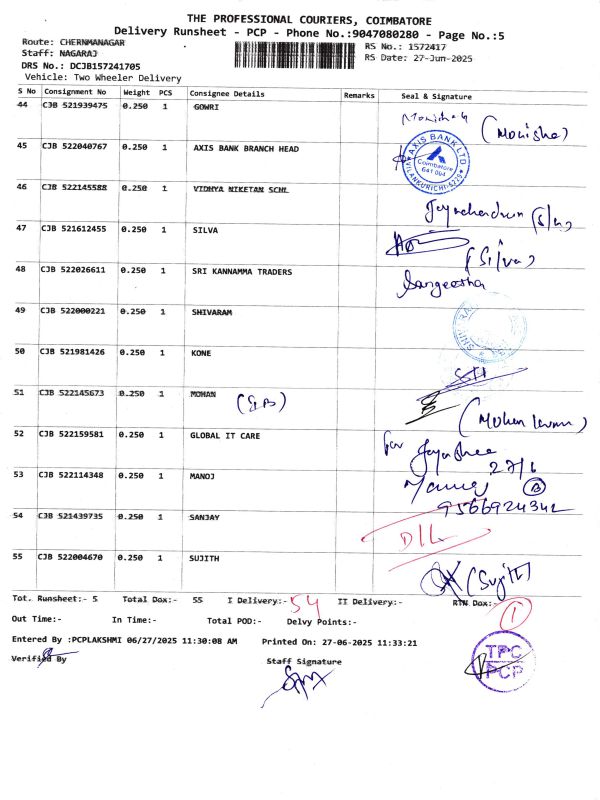 THE PROFESSIONAL COURIERS, COIMBATORE
Delivery Runsheet - PCP - Phone No.:9047080280 - Page No.:5
Route: CHERNMANAGAR
RS No.: 1572417
Staff: NAGARAJ
RS Date: 27-Jun-2025
DRS No.: DCJB157241705
Vehicle: Two Wheeler Delivery
S No Consignment No Weight PCS Consignee Details Remarks Seal & Signature
44 CJB 521939475 0.250 1 GOWRI
(Monisha)
45 CJB 522040767 0.250 1 AXIS BANK BRANCH HEAD
AXIS BANK LTD
Coimbatore
641 004
46 CJB 522145588 0.250 1 VIDHYA NIKETAN SCHL
47 CJB 521612455 0.250 1 SILVA
(Silva)
48 CJB 522026611 0.250 1 SRI KANNAMMA TRADERS
Sangeetha
49 CJB 522000221 0.250 1 SHIVARAM
50 CJB 521981426 0.250 1 KONE
51 CJB 522145673 0.250 1 MOHAN
52 CJB 522159581 0.250 1 GLOBAL IT CARE
for Jayashree
27/6
53 CJB 522114348 0.250 1 MANOJ
9566924342
54 CJB 521439735 0.250 1 SANJAY
D/L
55 CJB 522004670 0.250 1 SUJITH
(Sujith)
Tot. Runsheet:- 5 Total Dox:- 55 I Delivery:- 54 II Delivery:- RTN Dox:- 1
Out Time:- In Time:- Total POD:- Delvy Points:-
Entered By :PCPLAKSHMI 06/27/2025 11:30:08 AM Printed On: 27-06-2025 11:33:21
Verified By Staff Signature
TPC
PCP